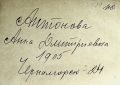 Антонова
Анна Дмитриевна
1905
Черногорск 24